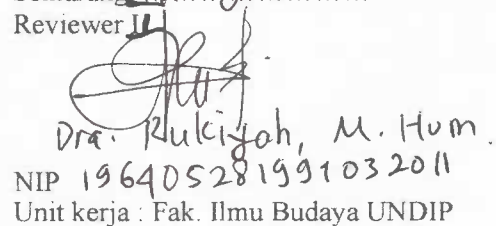 Reviewer II
Dra. Rukiyah, M. Hum
NIP 196405281991032011
Unit kerja : Fak. Ilmu Budaya UNDIP